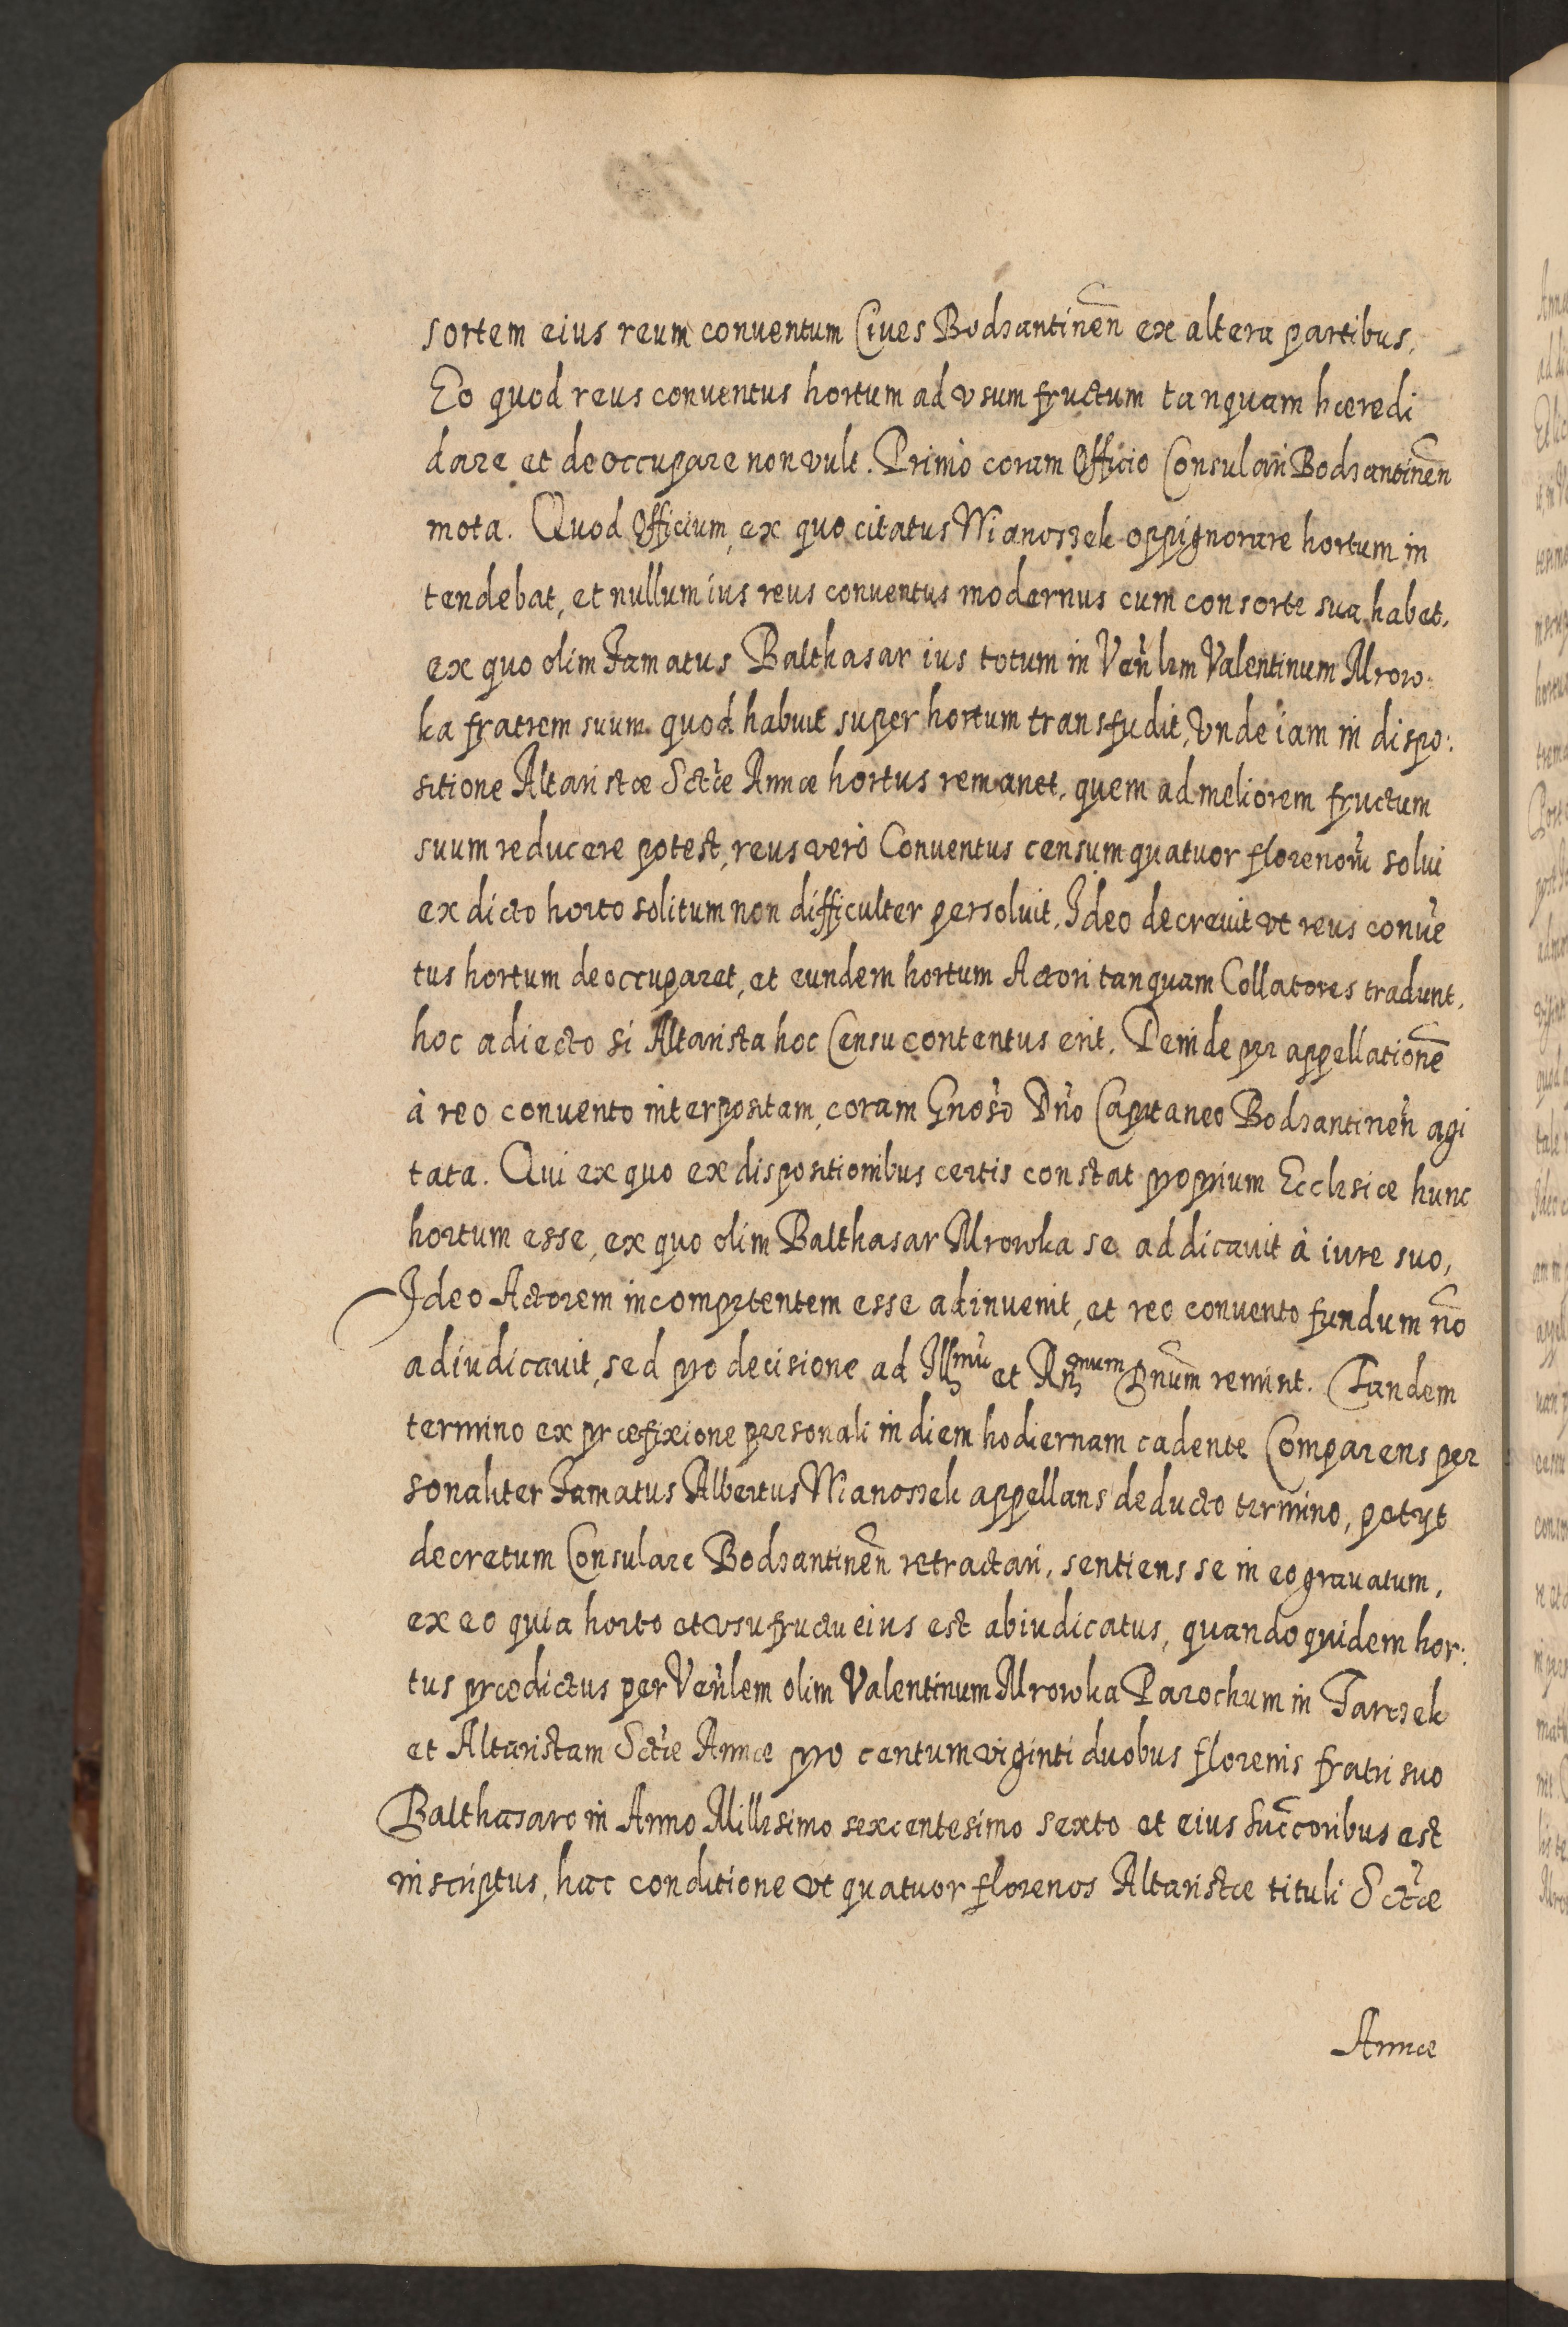 sortem eius reum conuentum Ciues Bodzantinen̄ ex altera partibus,
Eo quod reus conuentus hortum ad vsumfructum tanquam hæredi
dare et deoccupare non vult. Primò coram Officio Consulari Bodzantinen̄
mota. Quod Officium, ex quo citatus Wianoszek oppignorare hortum in
tendebat, et nullum ius reus conuentus modernus cum consorte sua habet,
ex quo olim Famatus Balthasar ius totum in Ven̄lem Valentinum Mrow:
ka fratrem suum quod habuit super hortum transfudit, vnde iam in dispo:
sitione Altaristæ Sctæ Annæ hortus remanet, quem ad meliorem fructum
suum reducere potest, reus verò Conuentus censum quatuor florenorū solui
ex dicto horto solitum non difficulter persoluit. Ideo decreuit vt reus conuē
tus hortum deoccuparet, et eundem hortum Actori tanquam Collatores tradunt,
hoc adiecto si Altarista hoc Censu contentus erit. Deinde per appellationē
à reo conuento interpositam, coram Gnōso Dn̄o Capitaneo Bodzantinen̄ agi
tata. Qui ex quo ex dispositionibus certis constat proprium Ecclesiæ hunc
hortum esse, ex quo olim Balthasar Mrowka se addicauit à iure suo,
Ideo Actorem incompetentem esse adinuenit, et reo conuento fundum nō
adiudicauit, sed pro decisione ad Illmū et Rn̄mum Dnum̄ remint. Tandem
termino ex præfixione personali in diem hodiernam cadente Comparens per
sonaliter Famatus Albertus Wianoszek appellans deducto termino, petyt
decretum Consulare Bodzantinen̄ retractari, sentiens se in eo grauatum,
ex eo quia horto et vsufructu eius est abiudicatus, quandoquidem hor:
tus prædictus per Ven̄lem olim Valentinum Mrowka Parochum in Tarczek
et Altaristam Sctæ Annæ pro centum viginti duobus florenis fratri suo
Balthasaro in Anno Millesimo sexcentesimo sexto et eius Succ̄oribus est
inscriptus, hac conditione vt quatuor florenos Altaristæ tituli Sctæ
Annæ